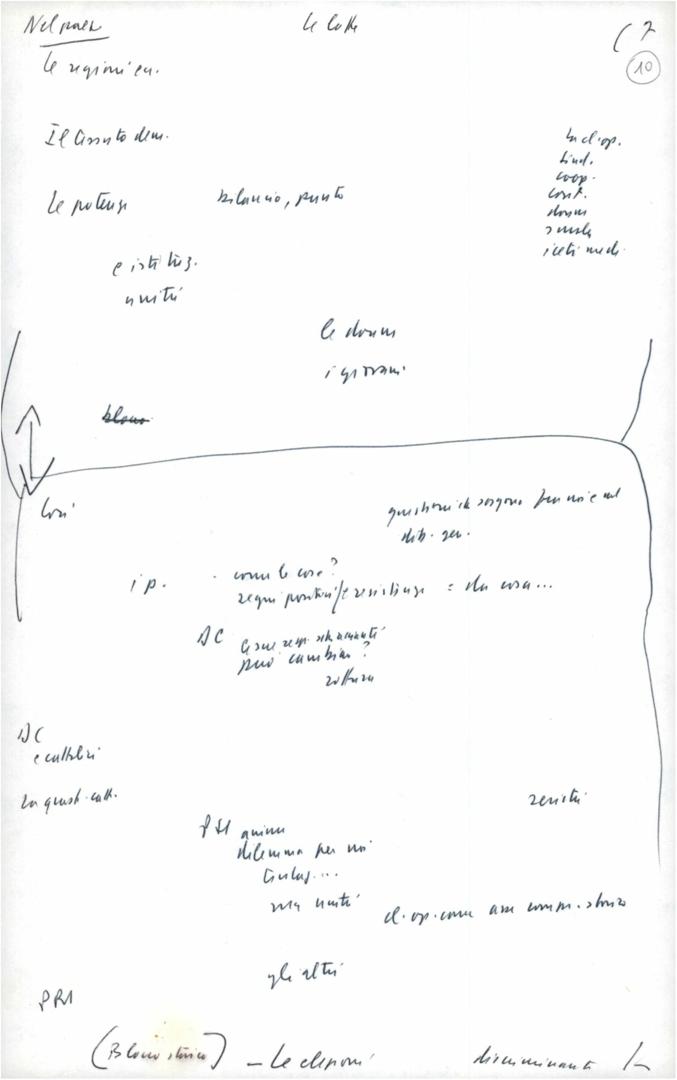 Nel paese
Le lotte
(7
10
Le regioni ecc.
Il tessuto dem.
La cl. op.
sind.
coop.
cont.
donne
scuola
i ceti medi
Le potenze
bilancio, punto
e istituz.
unità
le donne
i giovani
blocco
Così
questioni che sorgono per noi e nel
dib. gen.
i p.
come le cose?
segni positivi / e resistenze = da cosa...
DC
può cambiare?
rottura
DC
e cattolici
La quest. catt.
PSI
dilemma per noi
ma unità
cl. op. come asse comp. storico
gli altri
PRI
(Blocco storico) – Le elezioni
discriminante